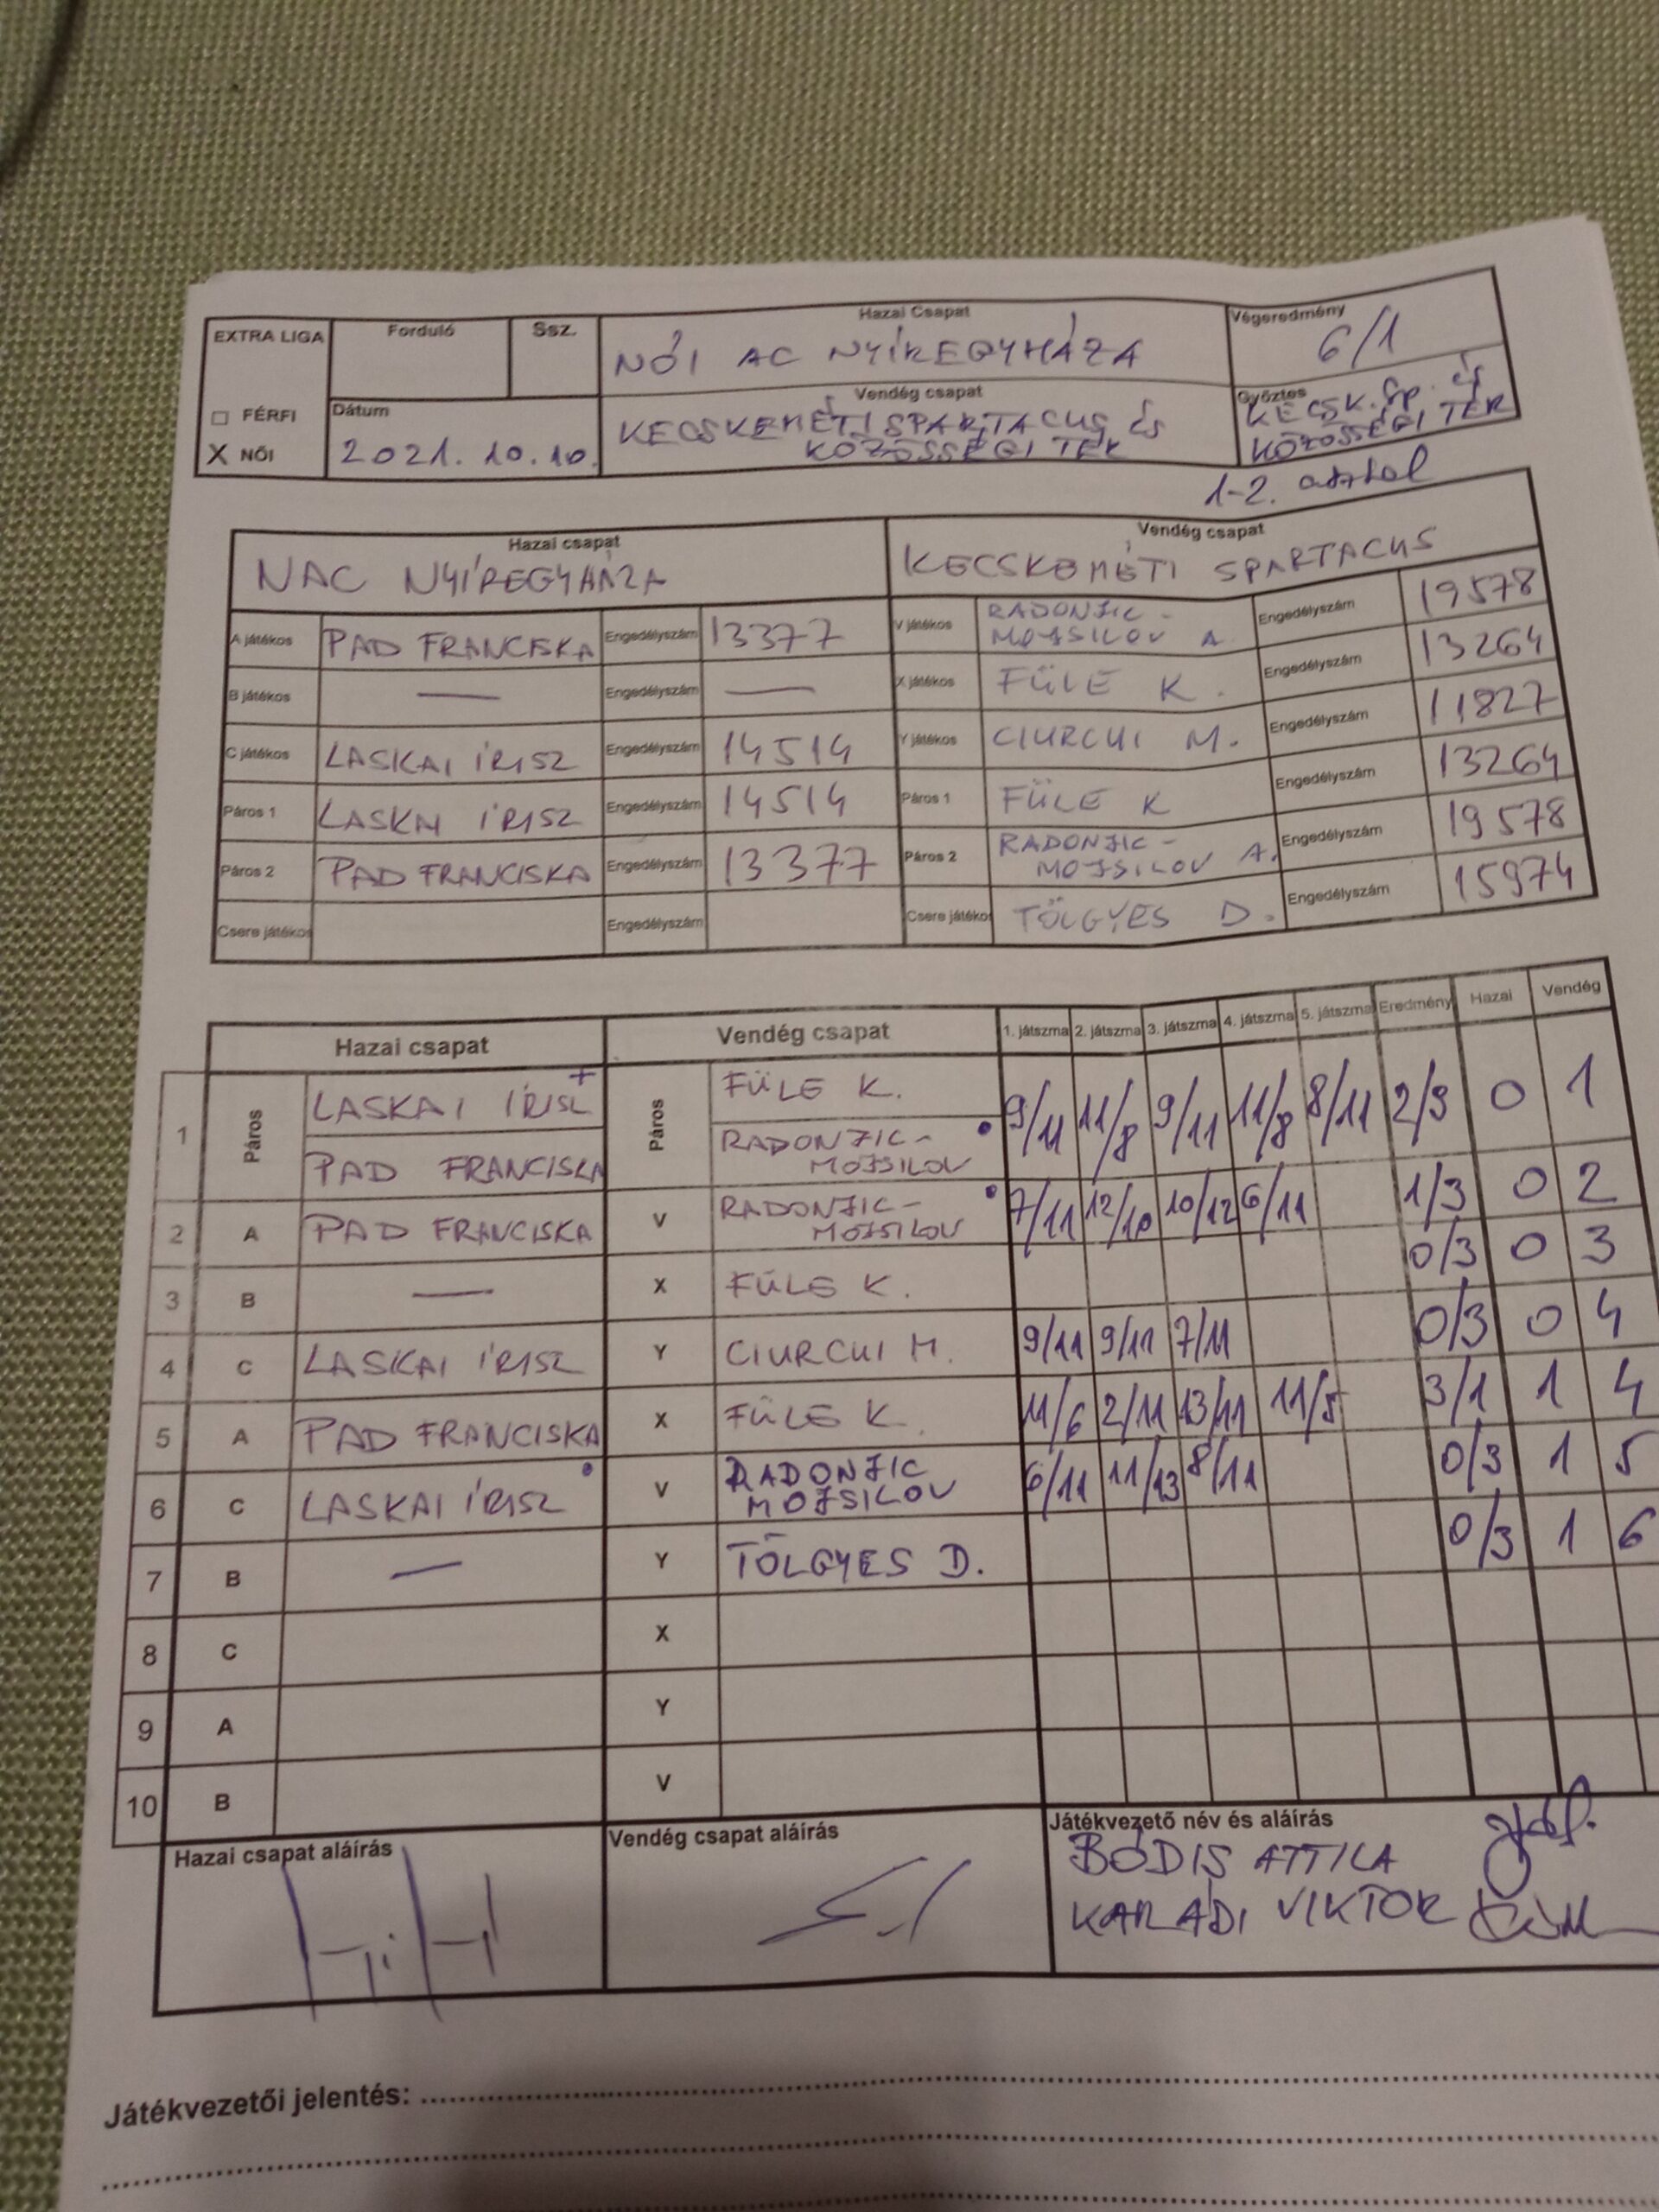 EXTRA LIGA
Forduló
Ssz.
Hazai Csapat
NŐI AC NYÍREGYHÁZA
Végeredmény
6/1
□ FÉRFI
X NŐI
Dátum
2021. 10. 10.
Vendég csapat
KECSKEMÉTI SPARTACUS És
KÖZÖSSÉGI TÉR
Győztes
KECSK. Sp. és
KÖZÖSSÉGI TÉR
1-2. asztal
Hazai csapat
NAC NYÍREGYHÁZA
Vendég csapat
KECSKEMÉTI SPARTACUS
A játékos PAD FRANCISKA Engedélyszám 13377 V játékos RADONJIC - MOJSILOV A. Engedélyszám 19578
B játékos — Engedélyszám — X játékos FÜLE K. Engedélyszám 13264
C játékos LASKAI ÍRISZ Engedélyszám 14514 Y játékos CIURCUI M. Engedélyszám 11827
Páros 1 LASKAI ÍRISZ Engedélyszám 14514 Páros 1 FÜLE K Engedélyszám 13264
Páros 2 PAD FRANCISKA Engedélyszám 13377 Páros 2 RADONJIC - MOJSILOV A. Engedélyszám 19578
Csere játékos Engedélyszám Csere játékos TÖLGYES D. Engedélyszám 15974
Hazai csapat Vendég csapat 1. játszma 2. játszma 3. játszma 4. játszma 5. játszma Eredmény Hazai Vendég
1 Páros LASKAI ÍRISZ + PAD FRANCISKA Páros FÜLE K. RADONJIC - MOJSILOV 9/11 11/8 9/11 11/8 8/11 2/3 0 1
2 A PAD FRANCISKA V RADONJIC - MOJSILOV 7/11 12/10 10/12 6/11 1/3 0 2
3 B — X FÜLE K. 0/3 0 3
4 C LASKAI ÍRISZ Y CIURCUI M. 9/11 9/11 7/11 0/3 0 4
5 A PAD FRANCISKA X FÜLE K. 11/6 2/11 13/11 11/5 3/1 1 4
6 C LASKAI ÍRISZ V RADONJIC MOJSILOV 6/11 11/13 8/11 0/3 1 5
7 B — Y TÖLGYES D. 0/3 1 6
8 C X
9 A Y
10 B V
Hazai csapat aláírás
Vendég csapat aláírás
Játékvezető név és aláírás
BÓDIS ATTILA
KARÁDI VIKTOR
Játékvezetői jelentés: